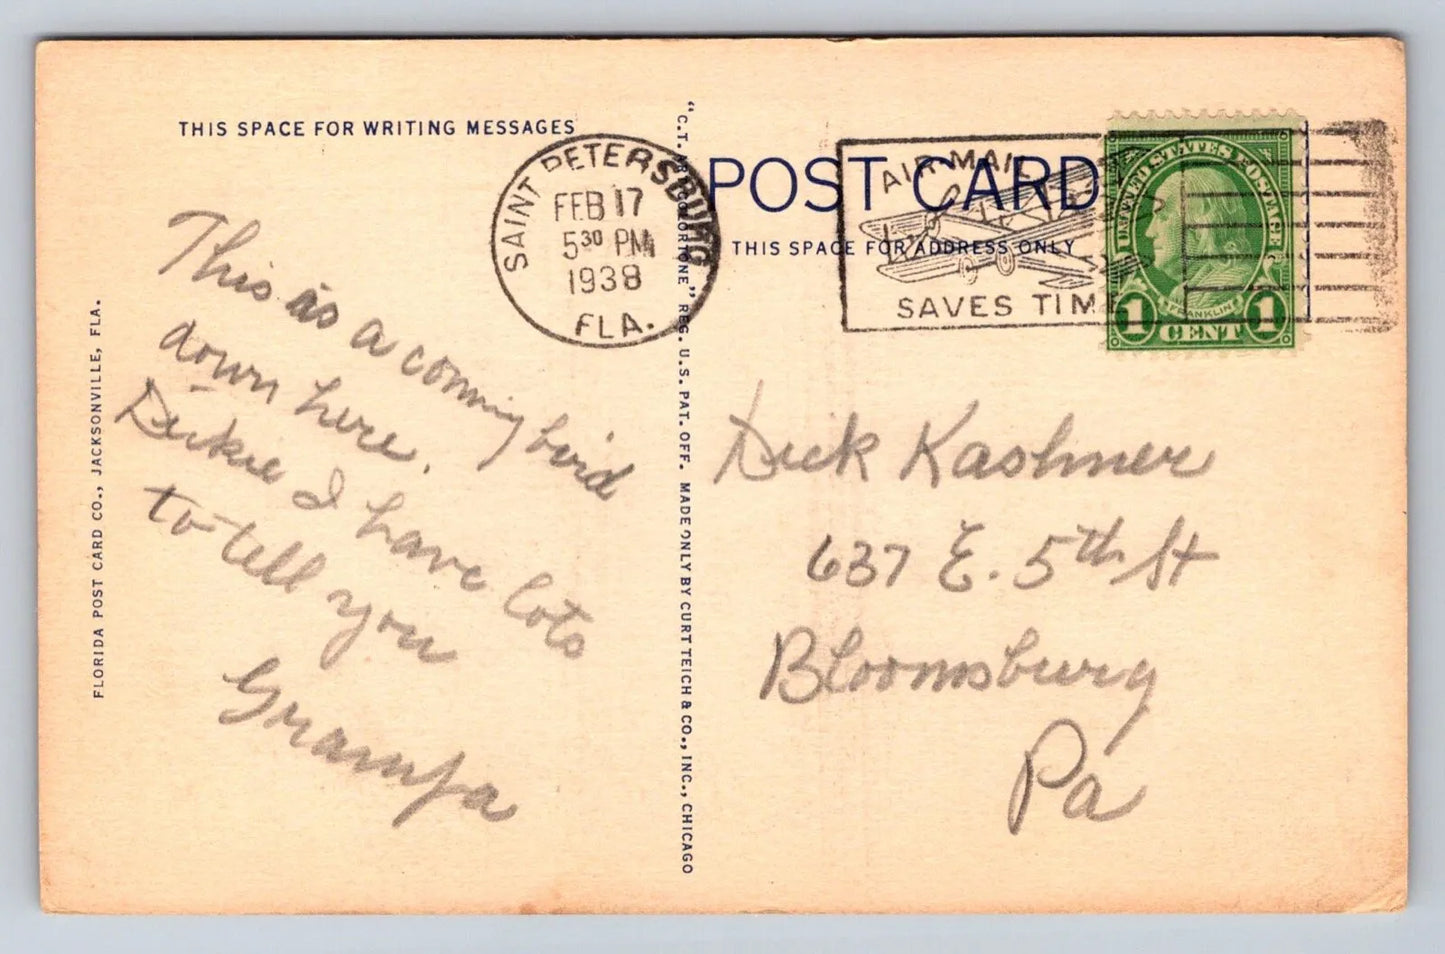 THIS SPACE FOR WRITING MESSAGES
This is a coming bird
down here.
Dickie I have lots
to tell you
Grampa
FLORIDA POST CARD CO., JACKSONVILLE, FLA.
SAINT PETERSBURG
FEB 17
5 30 PM
1938
FLA.
"C.T. ART-COLORTONE" REG. U.S. PAT. OFF. MADE ONLY BY CURT TEICH & CO., INC., CHICAGO
POST CARD
THIS SPACE FOR ADDRESS ONLY
AIR MAIL
SAVES TIME
UNITED STATES POSTAGE
FRANKLIN
1 CENT 1
Dick Kashner
637 E. 5th St
Bloomsburg
Pa